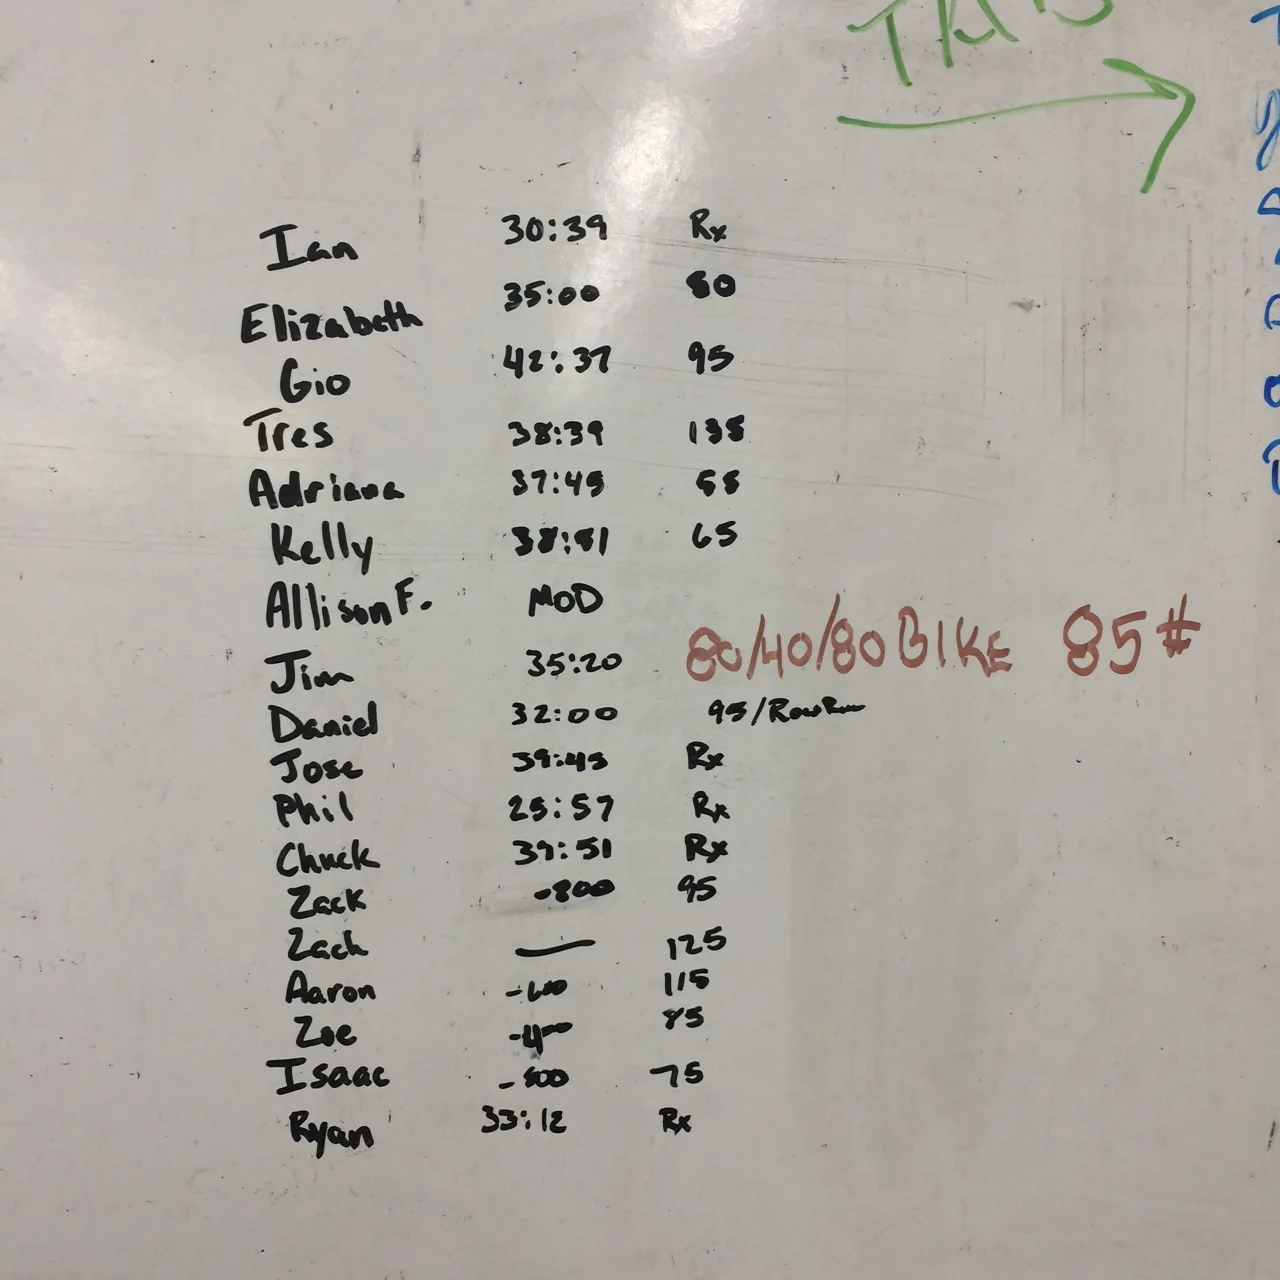 Ian 30:39 Rx
Elizabeth 35:00 80
Gio 42:37 95
Tres 38:39 135
Adriana 37:45 55
Kelly 65
Allison F. MOD
Jim 35:20 80/40/80 BIKE 85#
Daniel 32:00 95/Row Run
Jose 39:45 Rx
Phil 25:57 Rx
Chuck 39:51 Rx
Zack -800 95
Zach — 125
Aaron -600 115
Zoe -400 85
Isaac 75
Ryan 33:12 Rx